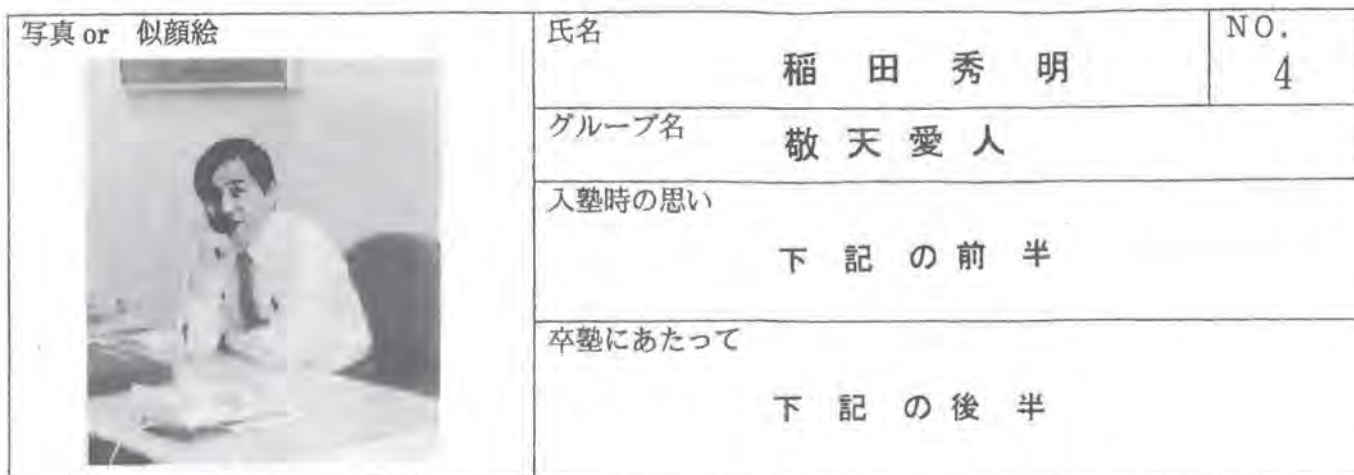 写真 or 似顔絵
氏名
稲田秀明
NO.
4
グループ名
敬天愛人
入塾時の思い
下記の前半
卒塾にあたって
下記の後半